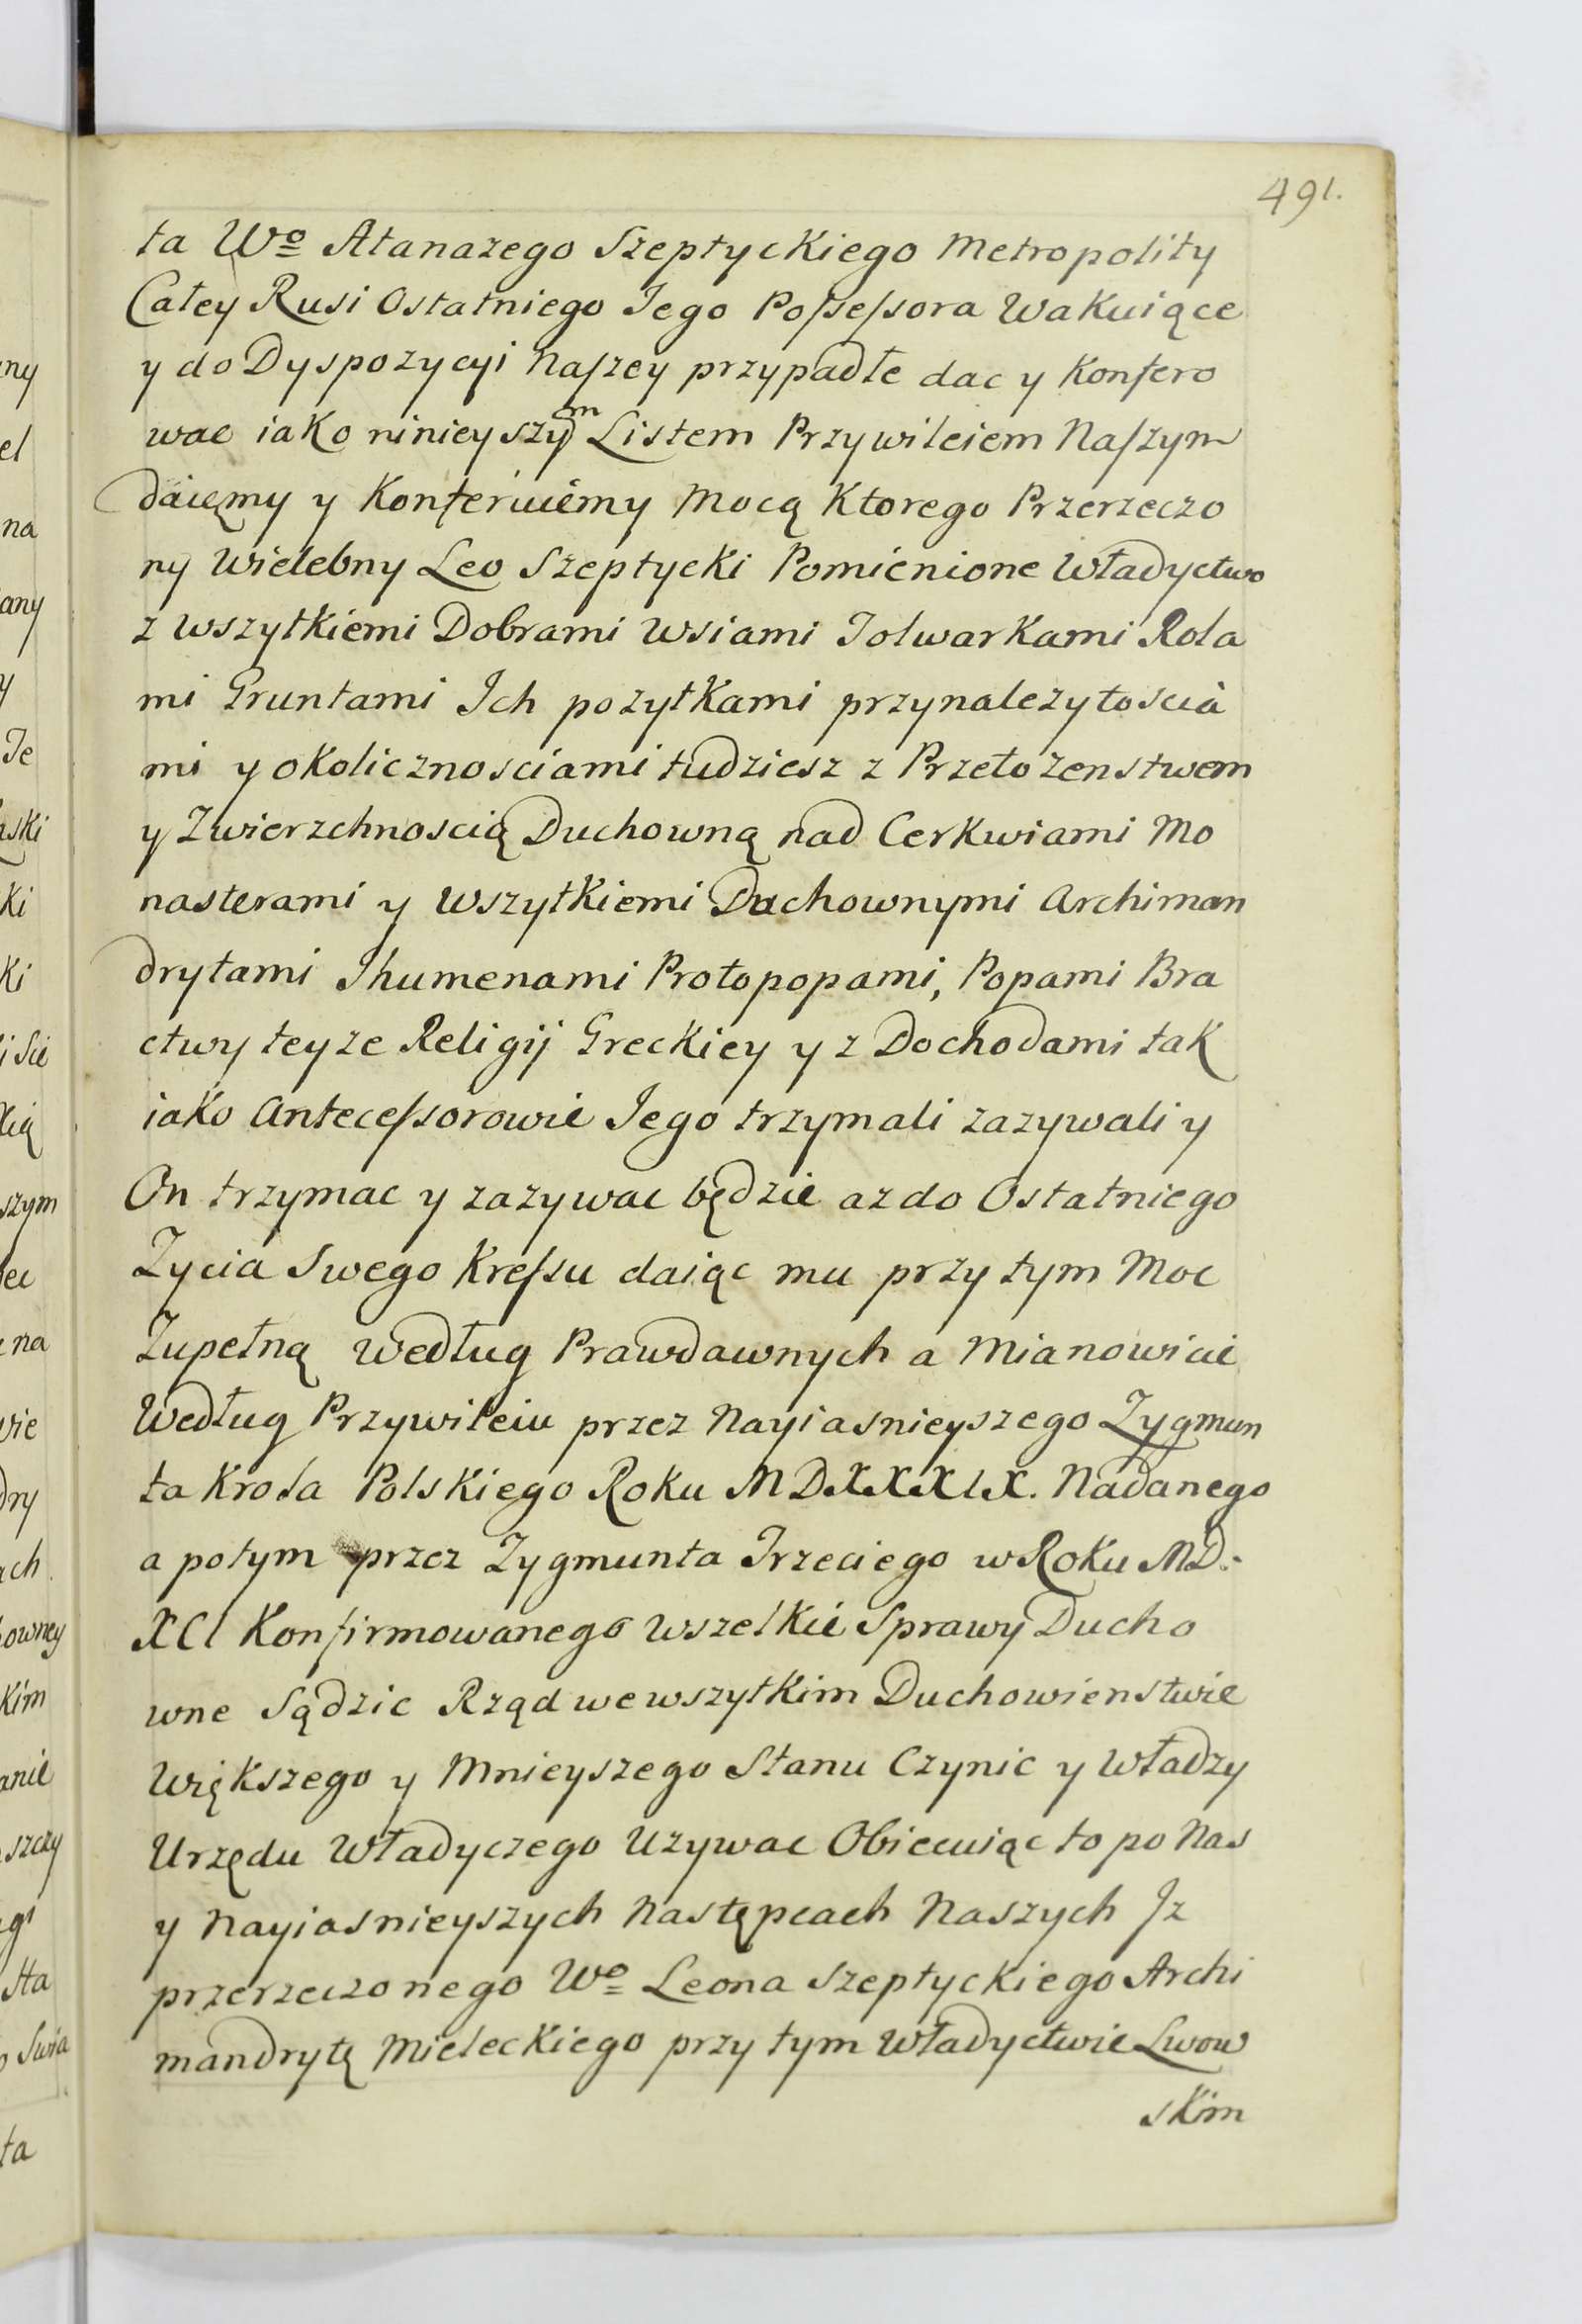 491.
ta Wo Atanazego Szeptyckiego Metropolity
Całey Rusi Ostatniego Jego Poſseſsora Wakuiące
y do Dyspozycyi Naſzey przypadłe dac y Konfero
wac iako ninieyszym Listem Przywileiem Naſzym
daięmy y Konferuiemy Mocą Ktorego Przerzeczo
ny Wielebny Leo Szeptycki Pomienione Władyctwo
z wszytkiemi Dobrami Wsiami Folwarkami Rola
mi Gruntami Ich pozytkami przynalezytościa
mi y okolicznosciami tudziesz z Przełozenstwem
y Zwierzchnoscią Duchowną nad Cerkwiami Mo
nasterami y Wszytkiemi Duchownymi Archiman
drytami Ihumenami Protopopami, Popami Bra
ctwy teyze Religij Greckiey y z Dochodami tak
iako Anteceſsorowie Jego trzymali zazywali y
On trzymac y zazywac będzie az do Ostatniego
Zycia Swego Kreſsu daiąc mu przy tym Moc
Zupełną według Praw dawnych a Mianowicie
Według Przywileiu przez Nayiasnieyszego Zygmun
ta Krola Polskiego Roku MDXXXIX. Nadanego
a potym przez Zygmunta Trzeciego w Roku MD.
XCI Konfirmowanego Wszelkie Sprawy Ducho
wne Sądzic Rząd we wszytkim Duchowienstwie
Większego y Mnieyszego Stanu Czynic y Władzy
Urzędu Władyczego Uzywac Obiecuiąc to po Nas
y Nayiasnieyszych Następcach Naszych Iz
przerzeczonego Wo Leona Szeptyckiego Archi
mandrytę Mieleckiego przy tym Władyctwie Lwow
skim
ny
el
na
any
y
Je
ski
ki
ki
szym
na
wie
dry
ach
owney
kim
anie
szczy
gi
Swia
ta